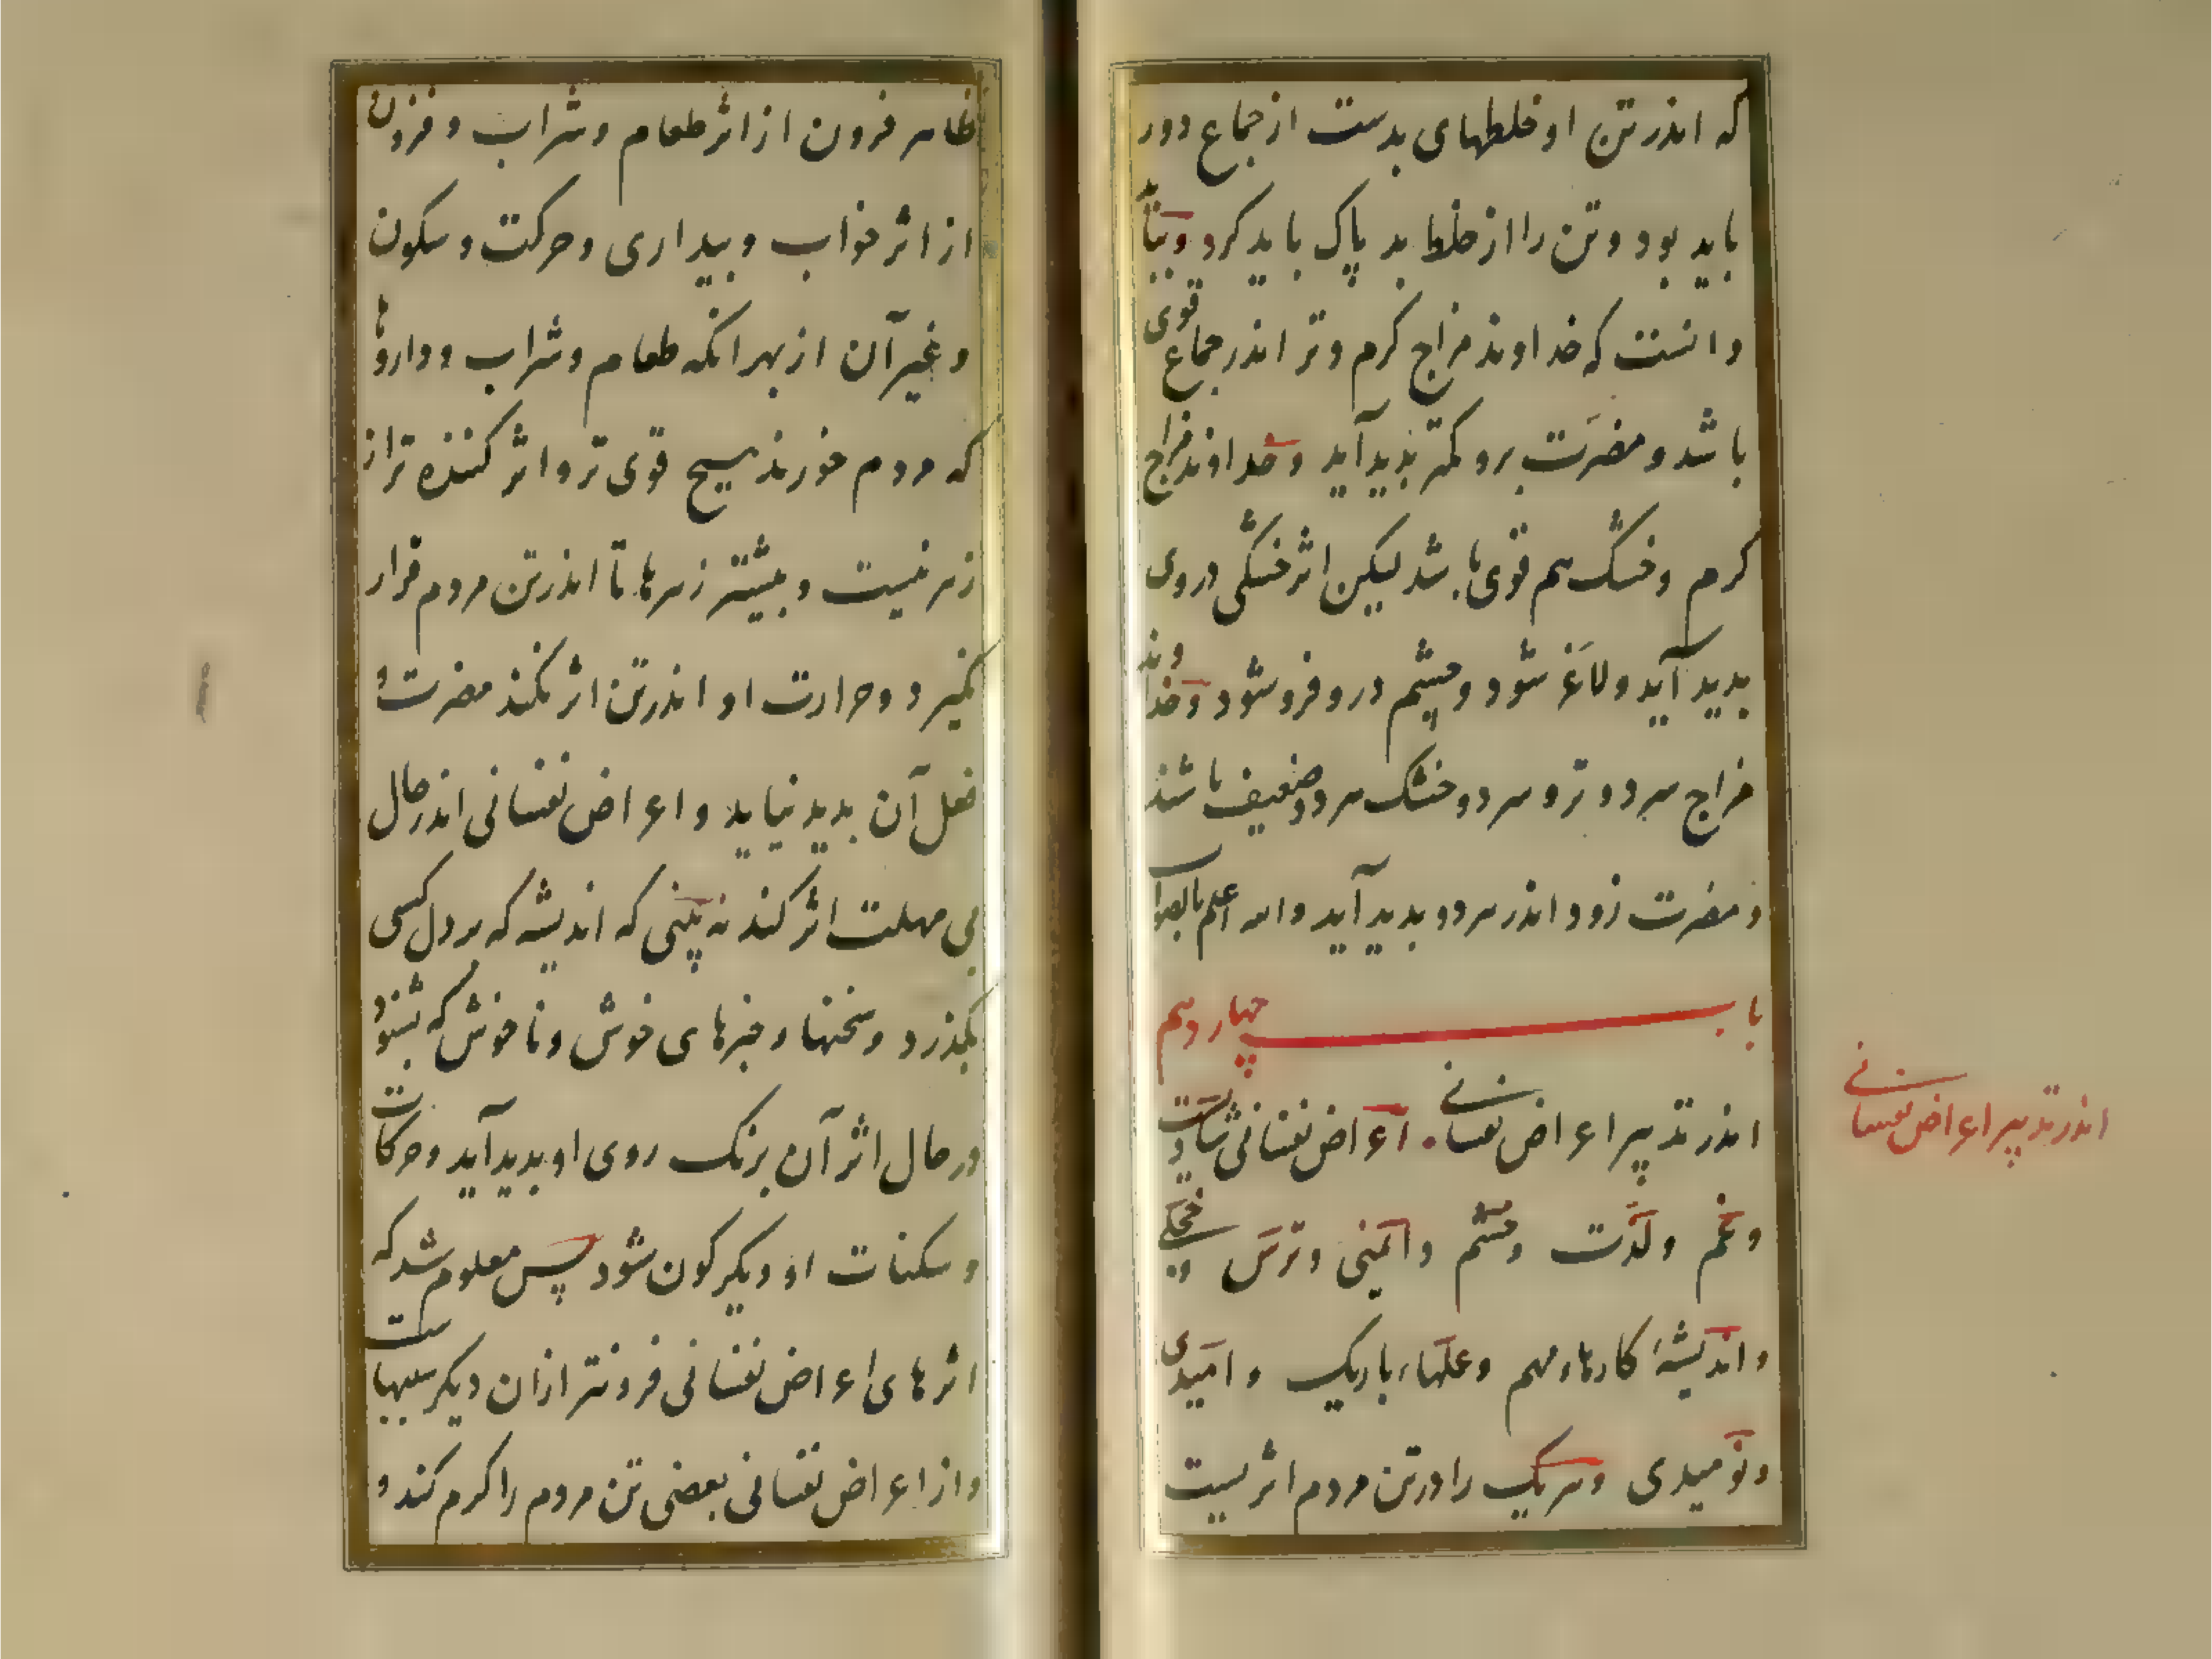 که اندر تن او خلطهای بدست از جماع دور
باید بود و تن را از خلط بد پاک باید کرد و بباید
دانست که خداوند مزاج کرم و تر اندر جماع قوی
باشد و مضرت برو کمتر بدید آید و خداوند مزاج
کرم و خشک هم قوی باشد لیکن اثر خشکی در وی
بدید آید و لاغر شود و چشم در و فرو شود و خداوند
مزاج سرد و تر و سرد و خشک هر دو ضعیف باشند
و مضرت زود اندر هر دو بدید آید والله اعلم بالصواب
باب چهاردهم
اندر تدبیر اعراض نفسانی اعراض نفسانی شادیست
و غم و لذت و خشم و ایمنی و ترس و خجلی
و اندیشهٔ کارهاء مهم و علمهاء باریک و امیدی
و نومیدی و هر یک را در تن مردم اثریست
اندر تدبیر اعراض نفسانی
ظاهر فزون از اثر طعام و شراب و فزون
از اثر خواب و بیداری و حرکت و سکون
و غیر آن از بهر انکه طعام و شراب و داروها
که مردم خورند هیچ قوی تر و اثر کننده تر از
زهر نیست و بیشتر زهرها تا اندر تن مردم قرار
نکیرد و حرارت او اندر تن اثر نکند مضرت و
فعل آن بدید نیاید و اعراض نفسانی اندر حال
بی مهلت اثر کند نه بینی که اندیشه که بر دل کسی
بکذرد و سخنها و خبرهای خوش و ناخوش که بشنود
در حال اثر آن بر رنک روی او بدید آید و حرکات
و سکنات او دیکر کون شود پس معلوم شد که
اثرهای اعراض نفسانی فزونتر از ان دیکر سببهاست
و از اعراض نفسانی بعضی تن مردم را کرم کند و